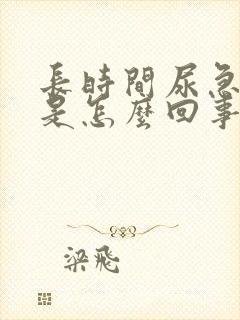 長時間尿急
是怎麼回事
梁飛